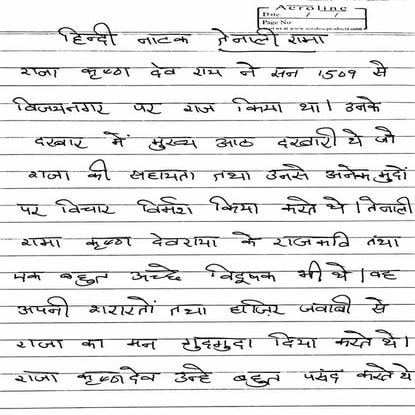 Aeroline
Date: / /
Page No:
हिन्दी नाटक तेनाली रामा
राजा कृष्ण देव राय ने सन 1509 से
विजयनगर पर राज किया था। उनके
दरबार में मुख्य आठ दरबारी थे जो
राजा की सहायता तथा उनसे अनेक मुदों
पर विचार विर्मश किया करते थे। तेनाली
रामा कृष्ण देवराया के राजकवि तथा
एक बहुत अच्छे विदूषक भी थे। वह
अपनी शरारतों तथा हाज़िर जवाबी से
राजा का मन गुदगुदा दिया करते थे।
राजा कृष्णदेव उन्हे बहुत पसंद करते थे